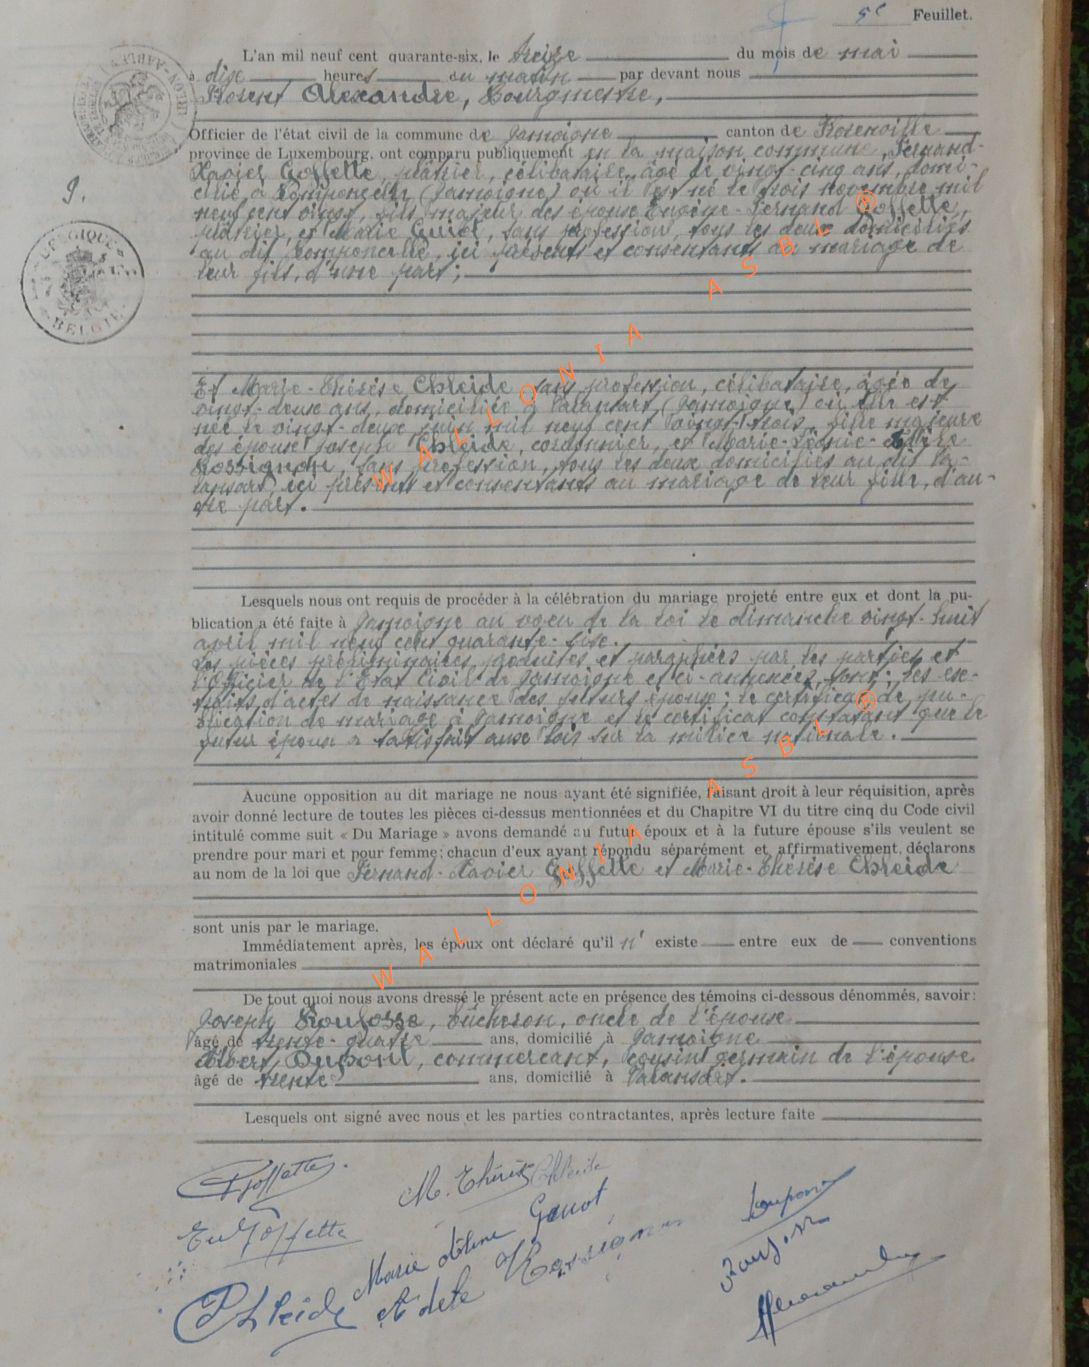 5e Feuillet.
L'an mil neuf cent quarante-six, le treize du mois de mai
à dix heures du matin par devant nous
Alexandre, Bourgmestre,
Officier de l'état civil de la commune de Jamoigne canton de Florenville
province de Luxembourg, ont comparu publiquement en la maison commune, Fernand-
Xavier Goffette, célibataire, âgé de vingt-cinq ans, domi-
cilié à Romponcelle (Jamoigne) où il est né le trois novembre mil
neuf cent vingt, fils majeur des époux Eugène-Fernand Goffette,
et Marie sans profession, tous les deux domiciliés
au dit Romponcelle, ici présents et consentants au mariage de
leur fils, d'une part;
9.
BELGIQUE
BELGIE
Et Marie-Thérèse Chleide, sans profession, célibataire, âgée de
vingt-deux ans, domiciliée à Valansart (Jamoigne) où elle est
née le vingt-deux juin mil neuf cent vingt-trois, fille majeure
des époux Joseph Chleide, cordonnier, et Marie-
Rossignon, sans profession, tous les deux domiciliés au dit Va-
lansart, ici présents et consentants au mariage de leur fille, d'au-
tre part.
Lesquels nous ont requis de procéder à la célébration du mariage projeté entre eux et dont la pu-
blication a été faite à Jamoigne au vœu de la loi le dimanche vingt-huit
avril mil neuf cent quarante-six.
Les pièces préliminaires, produites et paraphées par les parties et
l'Officier de l'Etat Civil de Jamoigne et ci-annexées, sont: les ex-
traits d'actes de naissance des futurs époux; le certificat de pu-
blication de mariage à Jamoigne et le certificat constatant que le
futur époux a satisfait aux lois sur la milice nationale.
Aucune opposition au dit mariage ne nous ayant été signifiée, faisant droit à leur réquisition, après
avoir donné lecture de toutes les pièces ci-dessus mentionnées et du Chapitre VI du titre cinq du Code civil
intitulé comme suit « Du Mariage » avons demandé au futur époux et à la future épouse s'ils veulent se
prendre pour mari et pour femme; chacun d'eux ayant répondu séparément et affirmativement, déclarons
au nom de la loi que Fernand-Xavier Goffette et Marie-Thérèse Chleide
sont unis par le mariage.
Immédiatement après, les époux ont déclaré qu'il n' existe entre eux de conventions
matrimoniales
De tout quoi nous avons dressé le présent acte en présence des témoins ci-dessous dénommés, savoir:
Joseph bûcheron, oncle de l'épouse
âgé de trente-quatre ans, domicilié à Jamoigne
Albert Dupont, commerçant, cousin germain de l'épouse
âgé de trente ans, domicilié à Valansart.
Lesquels ont signé avec nous et les parties contractantes, après lecture faite
Goffette
M. Thérèse Chleide
Eu Goffette
Marie
Chleide
Adèle Rossignon
WALLONIA ASBL ®
WALLONIA ASBL ®